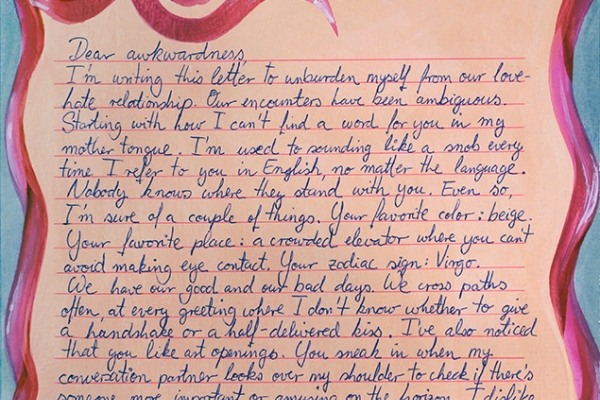 Dear awkwardness,
I'm writing this letter to unburden myself from our love-
hate relationship. Our encounters have been ambiguous.
Starting with how I can't find a word for you in my
mother tongue. I'm used to sounding like a snob every
time I refer to you in English, no matter the language.
Nobody knows where they stand with you. Even so,
I'm sure of a couple of things. Your favorite color: beige.
Your favorite place: a crowded elevator where you can't
avoid making eye contact. Your zodiac sign: Virgo.
We have our good and our bad days. We cross paths
often, at every greeting where I don't know whether to give
a handshake or a half-delivered kiss. I've also noticed
that you like art openings. You sneak in when my
conversation partner looks over my shoulder to check if there's
someone more important or amusing on the horizon. I dislike